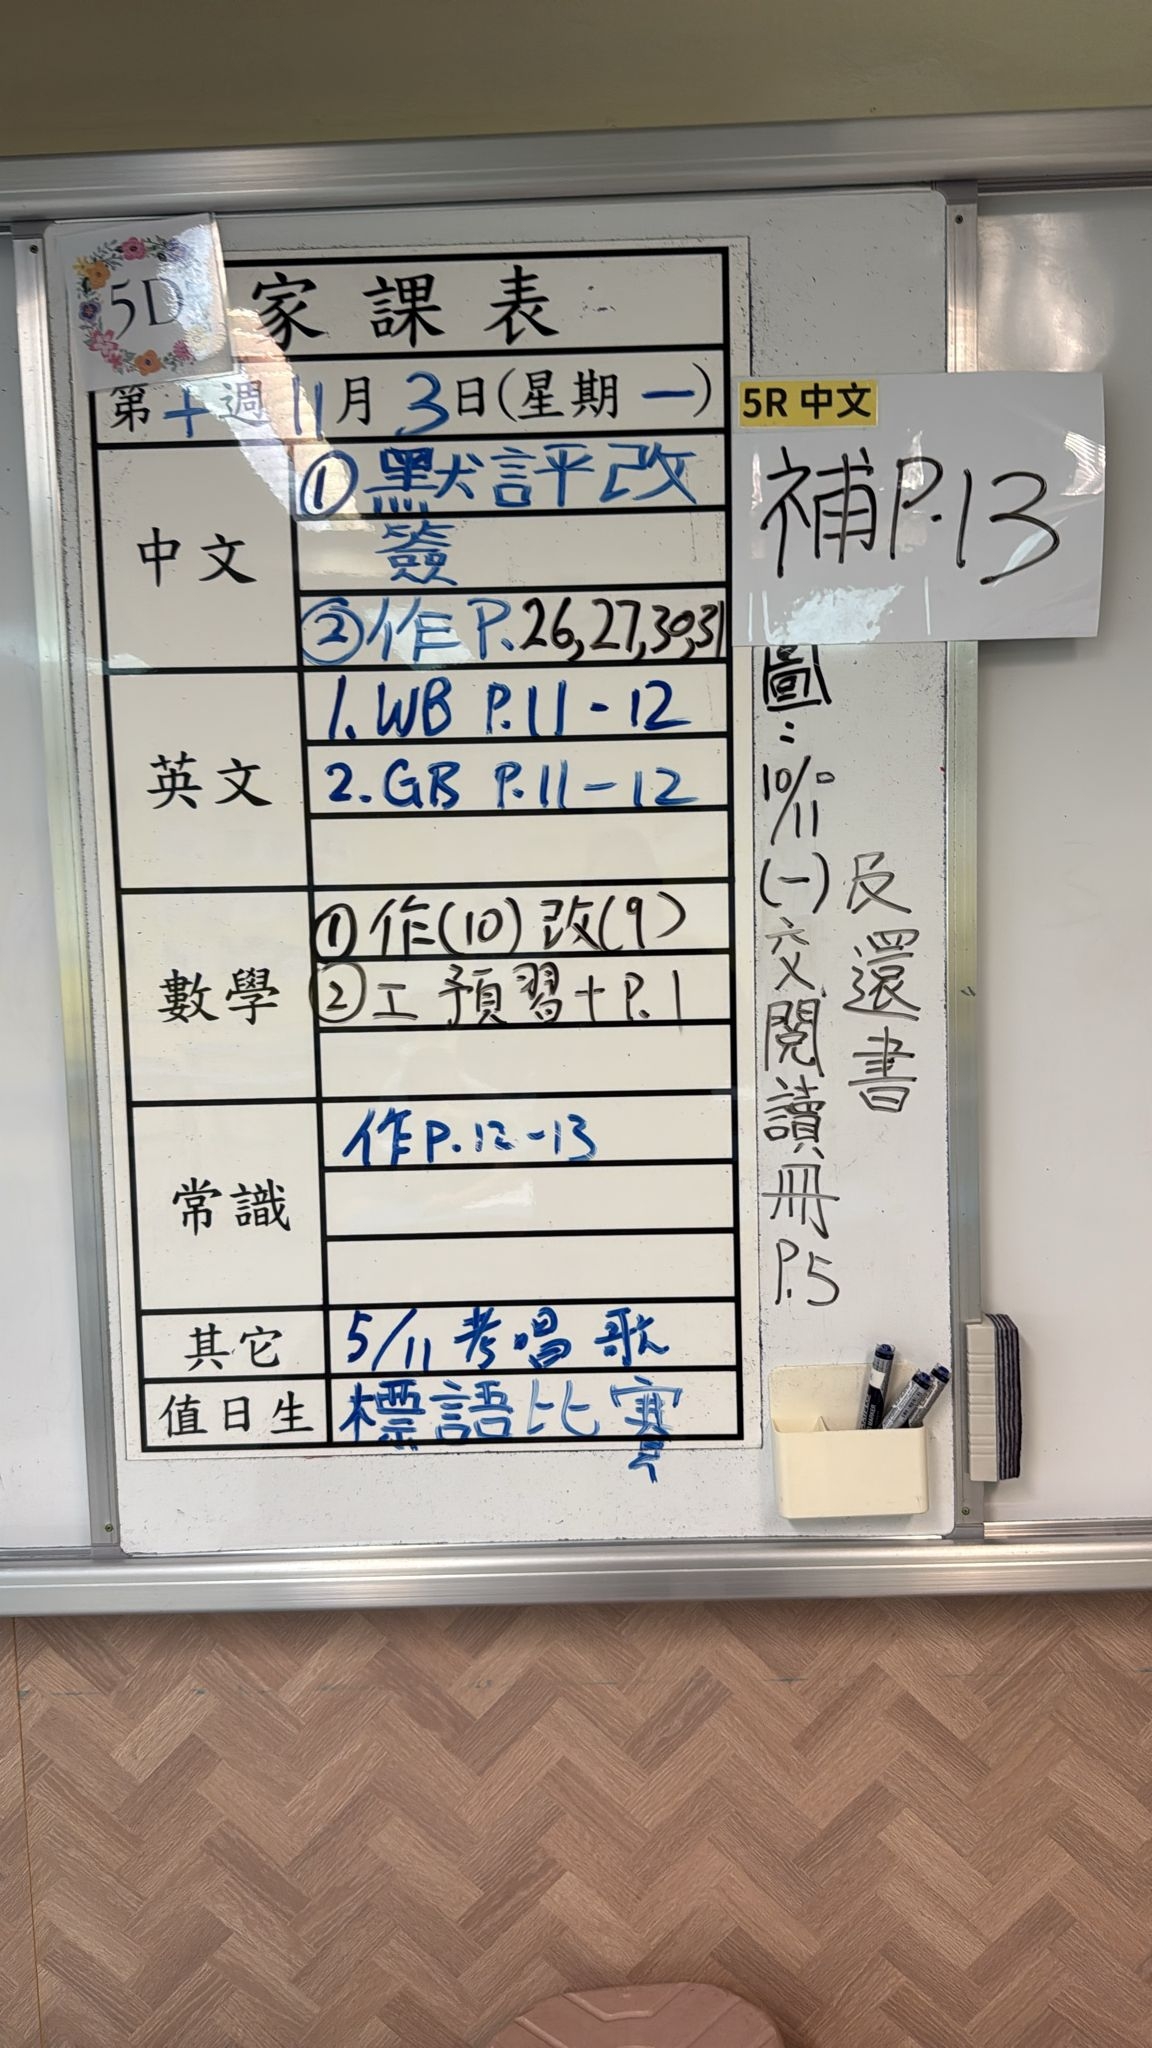 5D
家課表
第十週11月3日(星期一)
中文
①默評改
簽
②作P.26,27,30,31
英文
1.WB P.11-12
2.GB P.11-12
數學
①作(10)改(9)
②工預習+P.1
常識
作P.12-13
其它
5/11考唱歌
值日生
標語比賽
5R 中文
補P.13
圖:10/11(一)交閱讀冊P.5
及還書